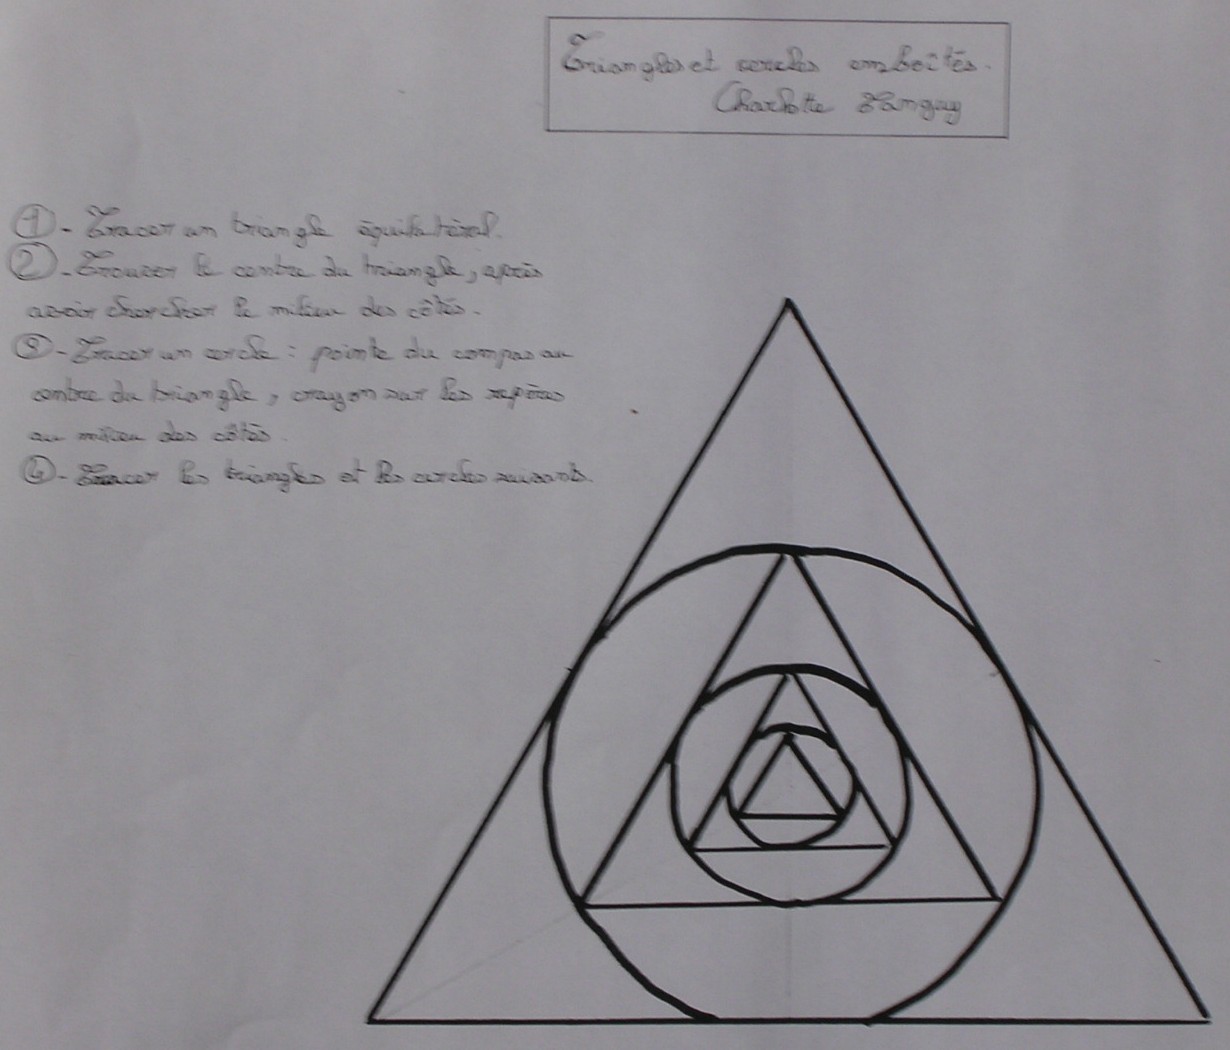 Triangles et cercles emboîtés.
Charlotte Tanguy
1 - Tracer un triangle équilatéral.
2 - Trouver le centre du triangle, après
avoir chercher le milieu des côtés.
3 - Tracer un cercle : pointe du compas au
centre du triangle, crayon sur les repères
au milieu des côtés.
4 - Tracer les triangles et les cercles suivants.